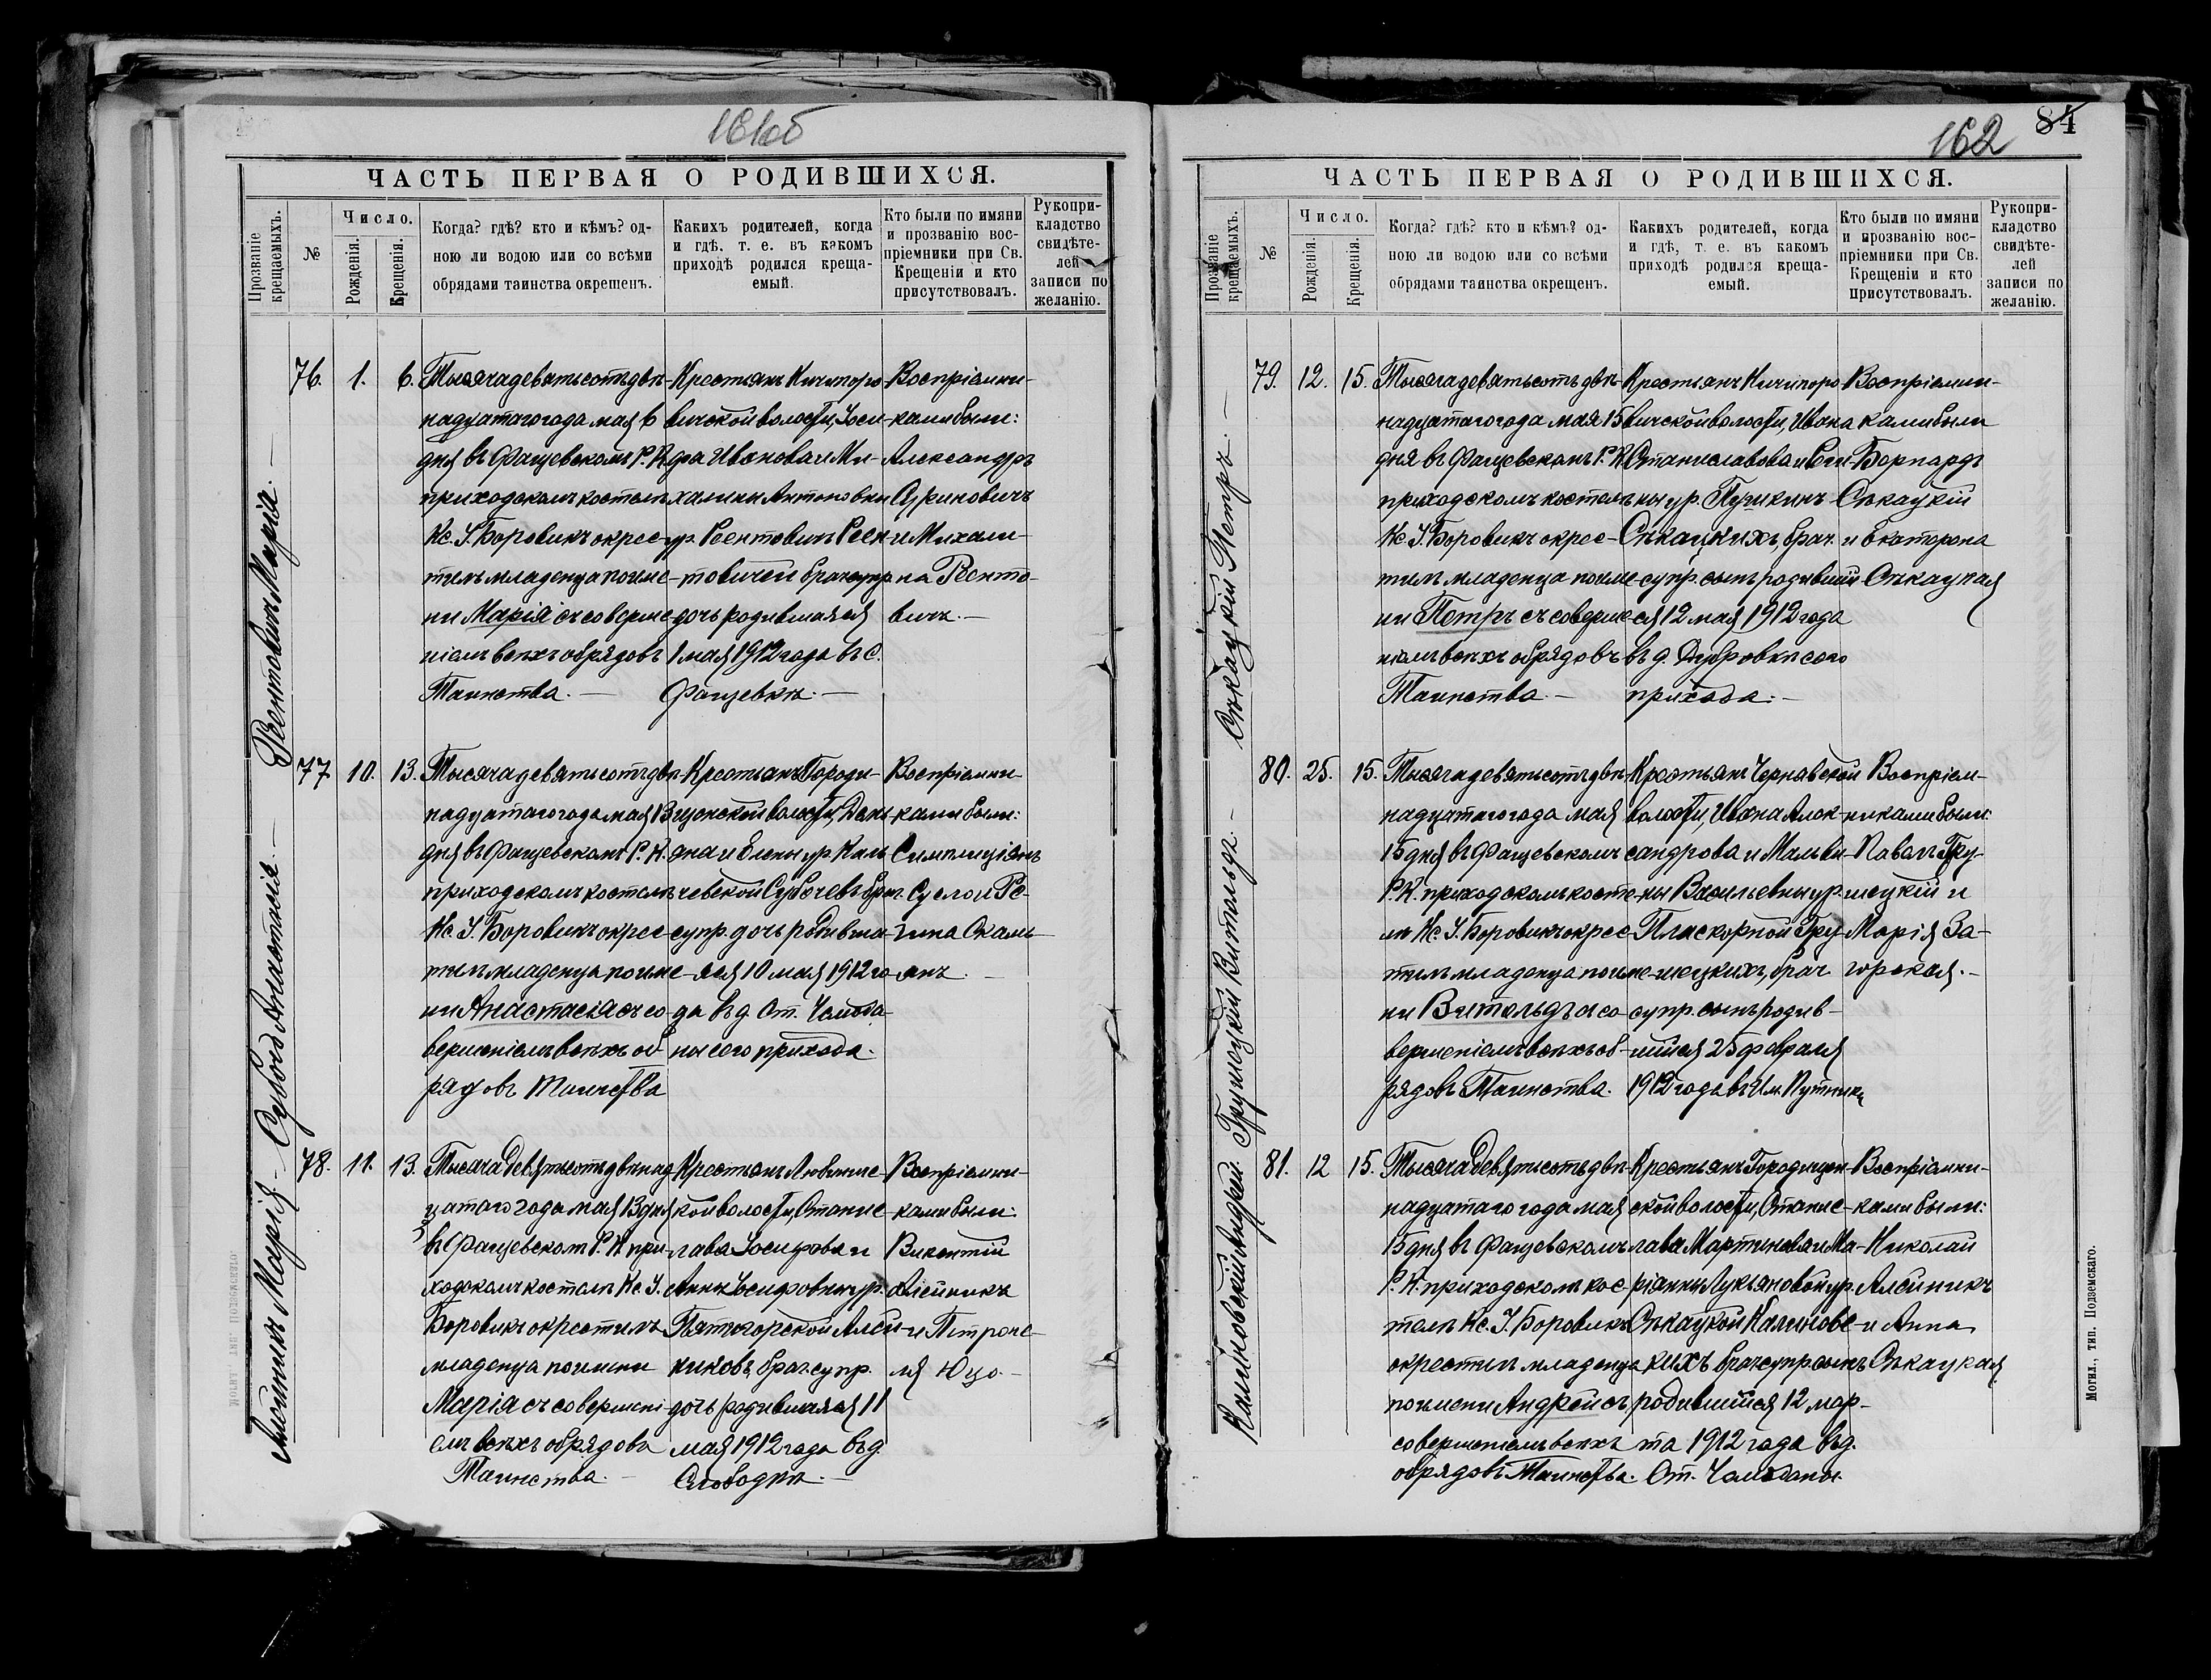 161об
ЧАСТЬ ПЕРВАЯ О РОДИВШИХСЯ.
Прозваніе крещаемыхъ.
№
Число.
Рожденія.
Крещенія.
Когда? гдѣ? кто и кѣмъ? од-
ною ли водою или со всѣми
обрядами таинства окрещенъ.
Какихъ родителей, когда
и гдѣ, т. е. въ какомъ
приходѣ родился креща-
емый.
Кто были по имяни
и прозванію вос-
пріемники при Св.
Крещеніи и кто
присутствовалъ.
Рукопри-
кладство
свидѣте-
лей
записи по
желанію.
Реентовичъ Марія.
76. 1. 6.
Тысяча девятьсотъ двѣ-
надцатаго года мая 6
дня въ Фащевскомъ Р. К.
приходскомъ костелѣ
Кс. І. Боровикъ окрес-
тилъ младенца по име-
ни Марія съ соверше-
ніемъ всѣхъ обрядовъ
Таинства.
Крестьянъ Кичипоро-
вичской волости, Іоси-
фа Иванова и Ми-
халины Антоновны
ур. Реентовичъ Реен-
товичей брач. супр.
дочь родившаяся
1 мая 1912 года въ с.
Фащевкѣ.
Воспріемни-
ками были:
Александръ
и Михали-
на Реенто-
вичъ.
Анастасія.
77 10. 13.
Тысяча девятьсотъ двѣ-
надцатаго года мая 13
дня въ Фащевскомъ Р. К.
приходскомъ костелѣ
Кс. І. Боровикъ окрес-
тилъ младенца по име-
ни Анастасія съ со-
вершеніемъ всѣхъ об-
рядовъ Таинства
Крестьянъ Городи-
щенской волости,
дочь родивша-
яся 10 мая 1912 го-
да въ д. Ст. Чамода-
ны сего прихода.
Воспріемни-
ками были:
Алейникъ Марія
78. 11. 13.
Тысяча девятьсотъ двѣнад-
цатаго года мая 13 дня
въ Фащевскомъ Р. К. при-
ходскомъ костелѣ Кс. І.
Боровикъ окрестилъ
младенца по имени
Марія съ совершені-
емъ всѣхъ обрядовъ
Таинства.
Крестьянъ Любинис-
кой волости, Станис-
лава Іосифова и
Анны Іосифовны ур.
Пятигорской Алей-
никовъ, брач. супр.
дочь родившаяся 11
мая 1912 года въ д.
Слободкѣ.
Воспріемни-
ками были:
Викентій
Алейникъ
и Петроне-
ля Юцо.
84
162
ЧАСТЬ ПЕРВАЯ О РОДИВШИХСЯ.
Прозваніе крещаемыхъ.
№
Число.
Рожденія.
Крещенія.
Когда? гдѣ? кто и кѣмъ? од-
ною ли водою или со всѣми
обрядами таинства окрещенъ.
Какихъ родителей, когда
и гдѣ, т. е. въ какомъ
приходѣ родился креща-
емый.
Кто были по имяни
и прозванію вос-
пріемники при Св.
Крещеніи и кто
присутствовалъ.
Рукопри-
кладство
свидѣте-
лей
записи по
желанію.
Сѣкацкій Петръ
79. 12. 15.
Тысяча девятьсотъ двѣ-
надцатаго года мая 15
дня въ Фащевскомъ Р. К.
приходскомъ костелѣ
Кс. І. Боровикъ окрес-
тилъ младенца по име-
ни Петръ съ соверше-
ніемъ всѣхъ обрядовъ
Таинства.
Крестьянъ Кичипоро-
вичской волости, Ивана
Станиславова и
ур. Пушкинъ
Сѣкацкихъ, брач.
супр. сынъ родивший-
ся 12 мая 1912 года
въ д. Дубровкѣ сего
прихода.
Воспріемни-
ками были
Бернардъ
Сѣкацкій
и Екатерина
Сѣкацкая
Грушецкій Витольдъ.
80. 25. 15.
Тысяча девятьсотъ двѣ-
надцатаго года мая
15 дня въ Фащевскомъ
Р. К. приходскомъ косте-
лѣ Кс. І. Боровикъ окрес-
тилъ младенца по име-
ни Витольдъ съ со-
вершеніемъ всѣхъ об-
рядовъ Таинства.
Крестьянъ Чернавской
волости, Ивана Алек-
сандрова и Мальви-
ны Васильевны ур.
Плескорной Гру-
шецкихъ, брач.
супр. сынъ родив-
шійся 25 февраля
1912 года въ Им. Путники
Воспріем-
никами были:
Павелъ Гру-
шецкій и
Марія За-
горская.
Калиновскій Андрей
81. 12 15.
Тысяча девятьсотъ двѣ-
надцатаго года мая
15 дня въ Фащевскомъ
Р. К. приходскомъ кос-
телѣ Кс. І. Боровикъ
окрестилъ младенца
по имени Андрей съ
совершеніемъ всѣхъ
обрядовъ Таинства.
Крестьянъ Городищен-
ской волости, Станис-
лава Мартинова и Ма-
ріанны Лукьяновой ур.
Сѣкацкой Калиновс-
кихъ брач. супр. сынъ
родившійся 12 мар-
та 1912 года въ д.
Ст. Чамоданы.
Воспріемни-
ками были:
Николай
Алейникъ
и Анна
Сѣкацкая
Могил., тип. Подземскаго.